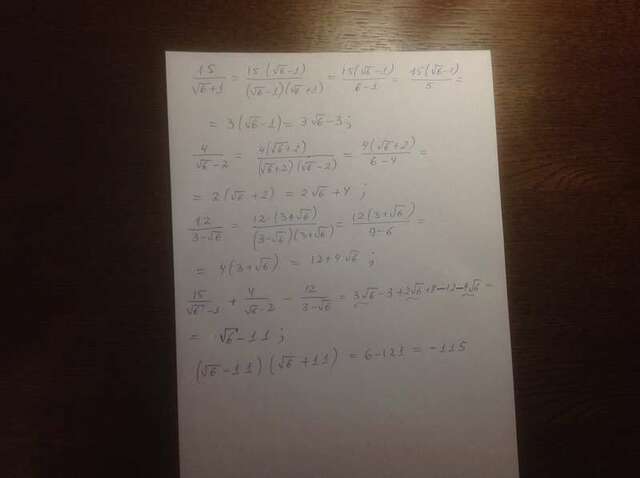 15/(√6+1) = 15(√6-1)/((√6-1)(√6+1)) = 15(√6-1)/(6-1) = 15(√6-1)/5 =
= 3(√6-1) = 3√6-3;
4/(√6-2) = 4(√6+2)/((√6+2)(√6-2)) = 4(√6+2)/(6-4) =
= 2(√6+2) = 2√6+4;
12/(3-√6) = 12·(3+√6)/((3-√6)(3+√6)) = 12(3+√6)/(9-6) =
= 4(3+√6) = 12+4√6;
15/(√6-1) + 4/(√6-2) - 12/(3-√6) = 3√6-3+2√6+4-12-4√6 =
= √6-11;
(√6-11)(√6+11) = 6-121 = -115